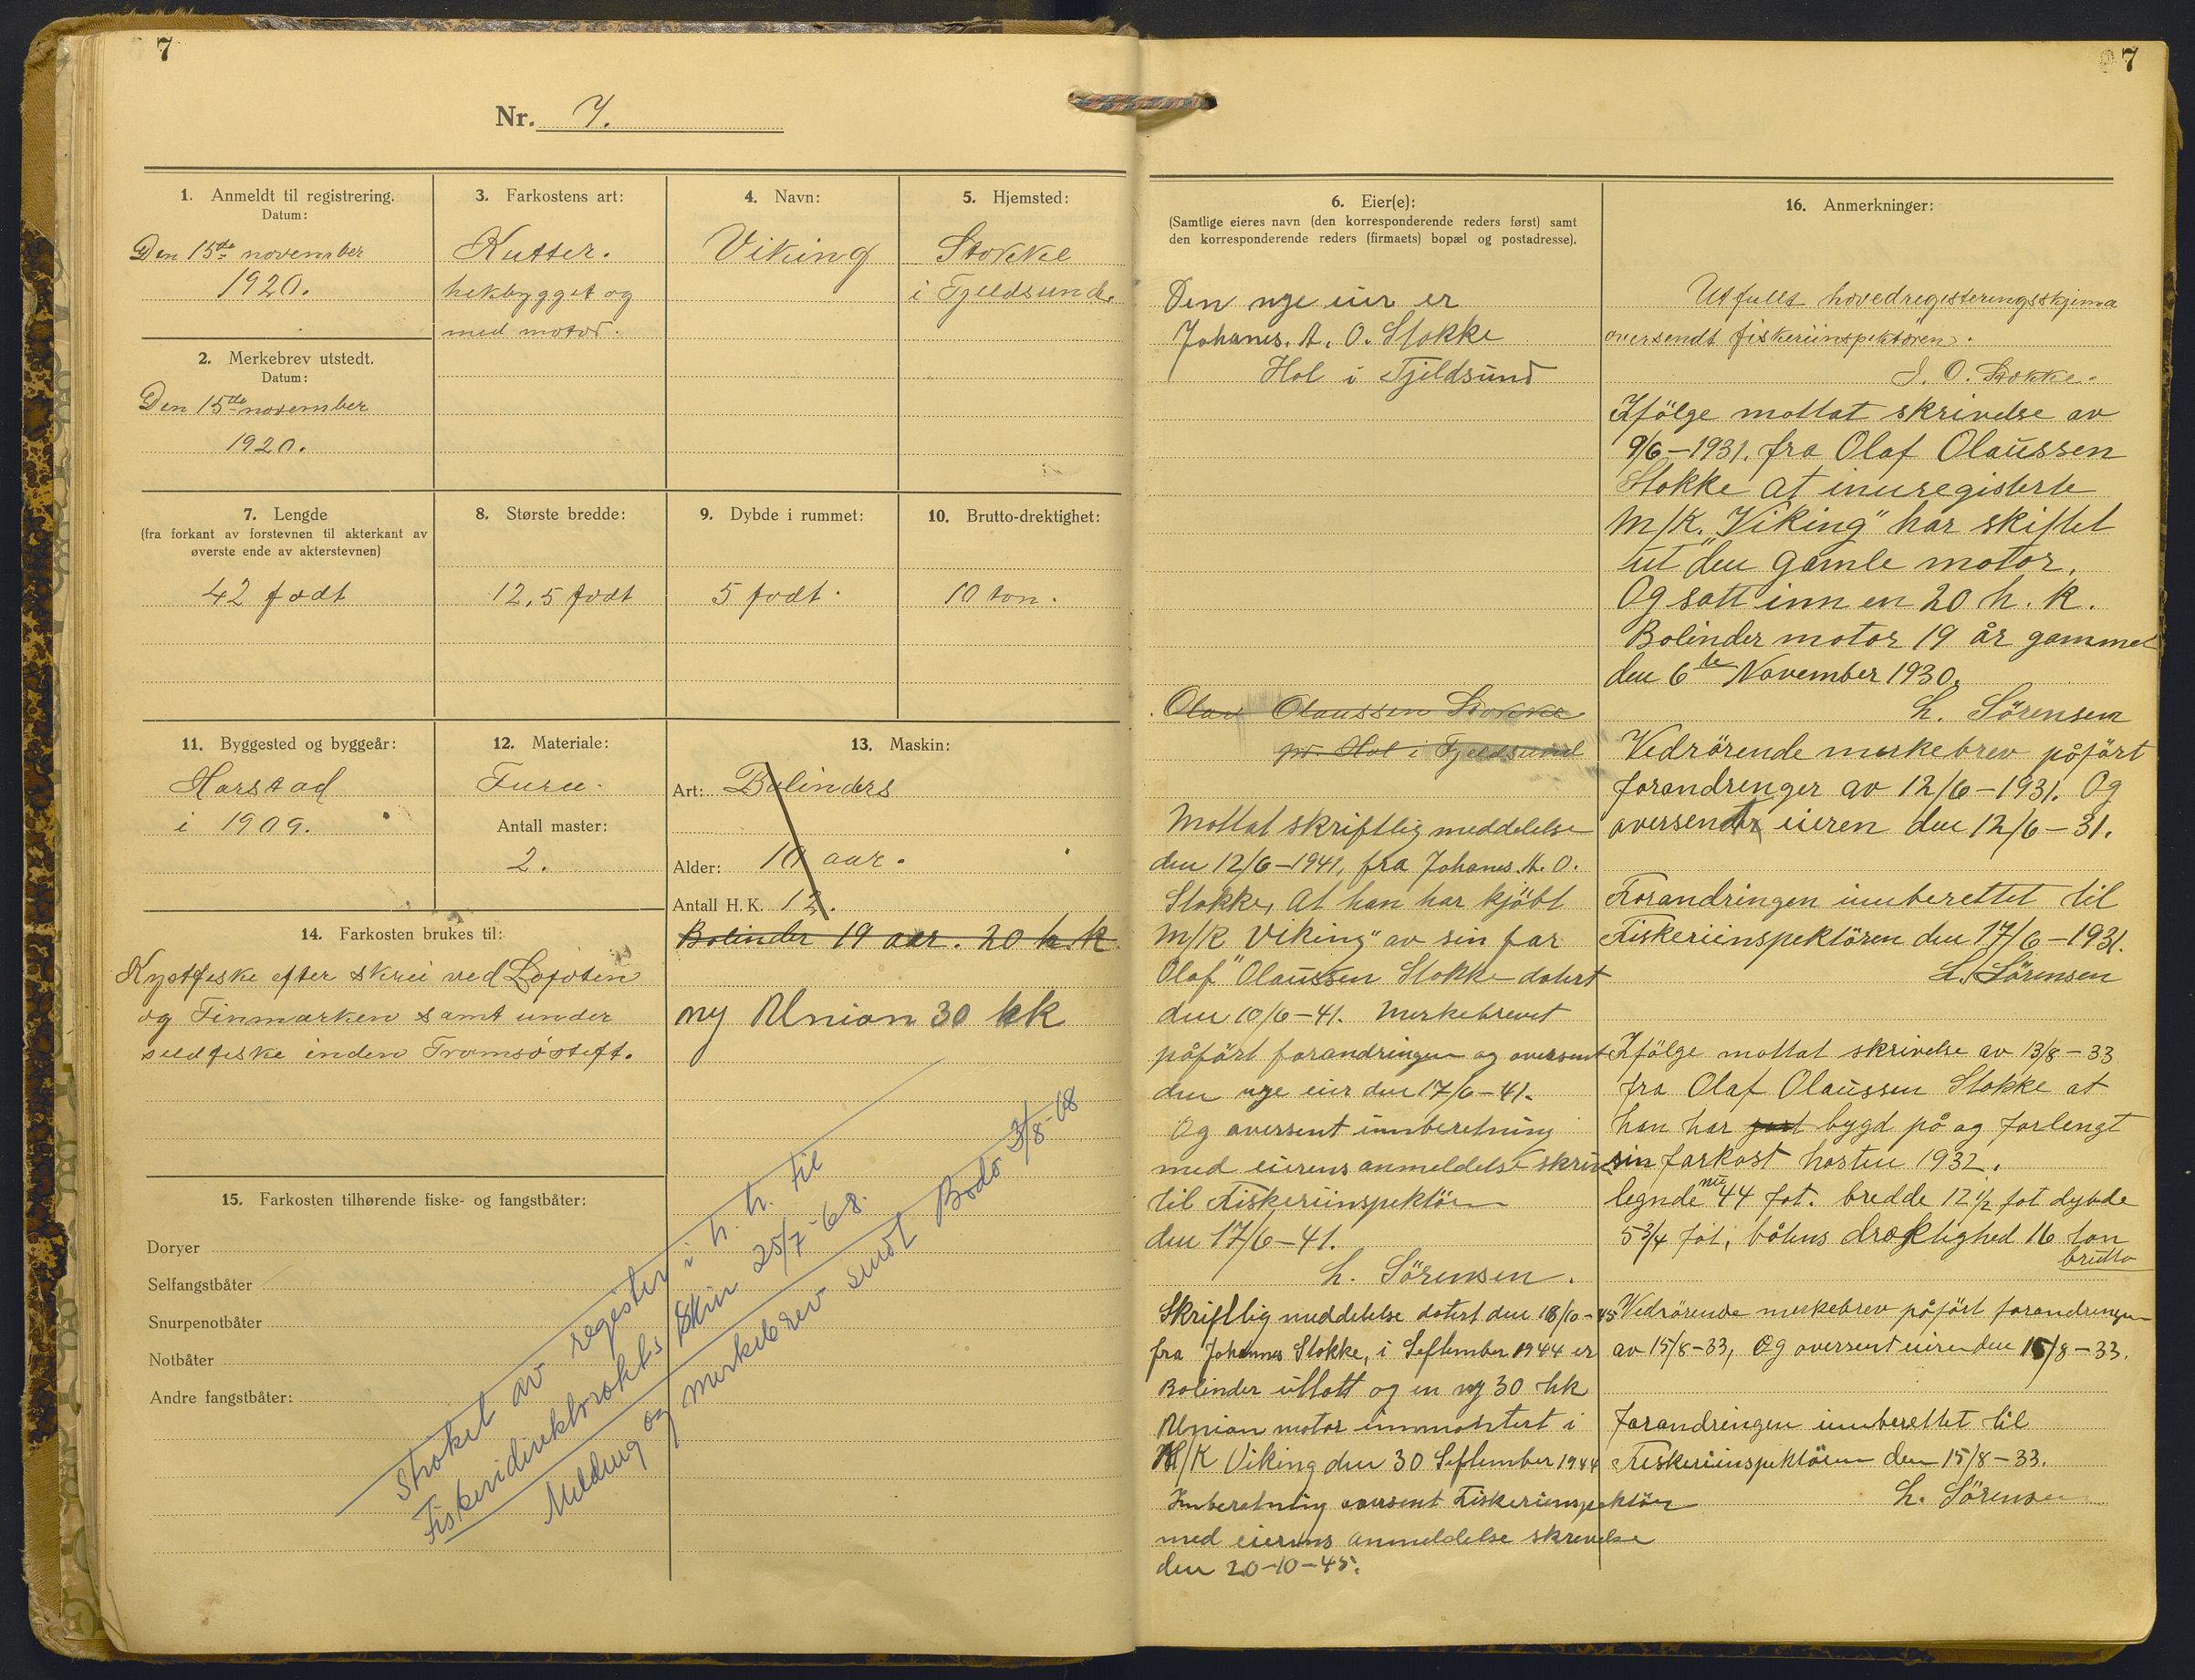 7
Nr. 7.
1. Anmeldt til registrering.
Datum:
Den 15de november
1920.
2. Merkebrev utstedt.
Datum:
Den 15de november
1920.
3. Farkostens art:
Kutter.
hekbygget og
med motor.
4. Navn:
Viking
5. Hjemsted:
Stokke
i Tjeldsund.
7. Lengde
(fra forkant av forstevnen til akterkant av
øverste ende av akterstevnen)
42 fodt
8. Største bredde:
12,5 fodt
9. Dybde i rummet:
5 fodt.
10. Brutto-drektighet:
10 ton.
11. Byggested og byggeår:
Harstad
i 1909.
12. Materiale:
Furu.
Antall master:
2.
13. Maskin:
Art: Bolinders
Alder: 10 aar.
Antall H. K. 12.
Bolinder 19 aar. 20 h.k.
ny Union 30 hk
14. Farkosten brukes til:
Kystfiske efter skrei ved Lofoten
og Finmarken samt under
sildfiske inden Tromsøstift.
15. Farkosten tilhørende fiske- og fangstbåter:
Doryer
Selfangstbåter
Snurpenotbåter
Notbåter
Andre fangstbåter:
Strøket av register i h.h. til
Fiskeridirektorakts skriv 25/7-68.
Melding og merkebrev sendt Bodø 3/8-68
7
6. Eier(e):
(Samtlige eieres navn (den korresponderende reders først) samt
den korresponderende reders (firmaets) bopæl og postadresse).
Den nye eier er
Johanes. A. O. Stokke
Hol i Tjeldsund
Olav Olaussen Stokke
pr. Hol i Tjeldsund
Mottat skriftlig meddelelse
den 12/6-1941, fra Johanes. A. O.
Stokke, At han har kjöbt
M/K "Viking" av sin far
Olaf Olaussen Stokke datert
den 10/6-41. Merkebrevet
påfört forandringen og oversent
den nye eier den 17/6-41.
Og oversent innberetning
med eierens anmeldelse skriv
til Fiskeriinspektör
den 17/6-41.
L. Sörensen.
Skriftlig meddelelse datert den 18/10-45
fra Johannes Stokke, i September 1944 er
Bolinder uttatt og en ny 30 hk
Union motor innmontert i
M/K Viking den 30 September 1944
Inberetning oversent Fiskeriinspektör
med eierens anmeldelse skrevelse
den 20-10-45.
16. Anmerkninger:
Utfullt hovedregisteringsskjema
oversendt fiskeriinspektøren.
J. O. Stokke.
Ifölge mottat skrivelse av
9/6-1931. fra Olaf Olaussen
Stokke at innregisterte
M/K. "Viking" har skiftet
ut den gamle motor.
Og satt inn en 20 h. k.
Bolinder motor 19 år gammel
den 6te November 1930.
L. Sörensen
Vedrörende merkebrev påfört
forandringer av 12/6-1931. Og
oversendt eieren den 12/6-31.
Forandringen innberettet til
Fiskeriinspektören den 17/6-1931.
L. Sörensen
Ifölge mottat skrivelse av 13/8-33
fra Olaf Olaussen Stokke at
han har bygd på og forlengt
sin farkost hosten 1932.
legnde nu 44 fot. bredde 12 1/2 fot dybde
5 3/4 fot, båtens dræktighed 16 ton
brutto
Vedrörende merkebrev påfört forandringen
av 15/8-33, Og oversent eieren den 15/8-33.
Forandringen innberettet til
Fiskeriinspektören den 15/8-33.
L. Sörensen